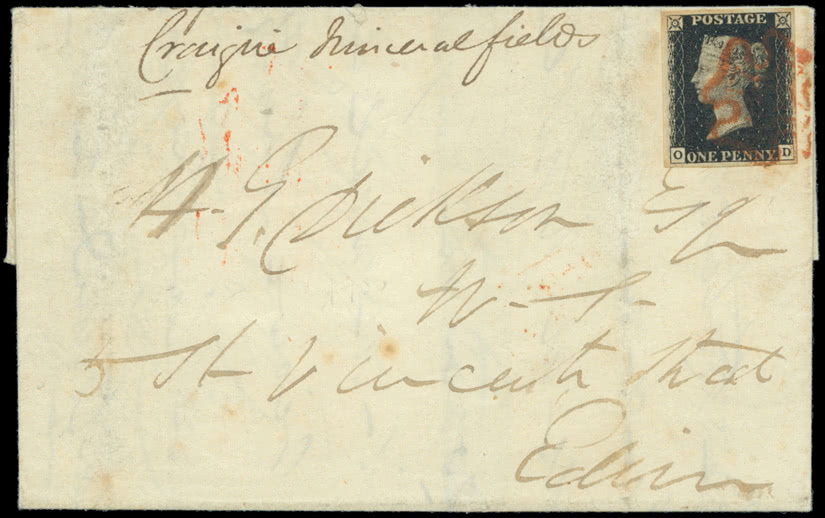 Craigie Mineralfields
POSTAGE
O ONE PENNY D
Dickson Esq
W. S.
5 St Vincent Street
Edinr